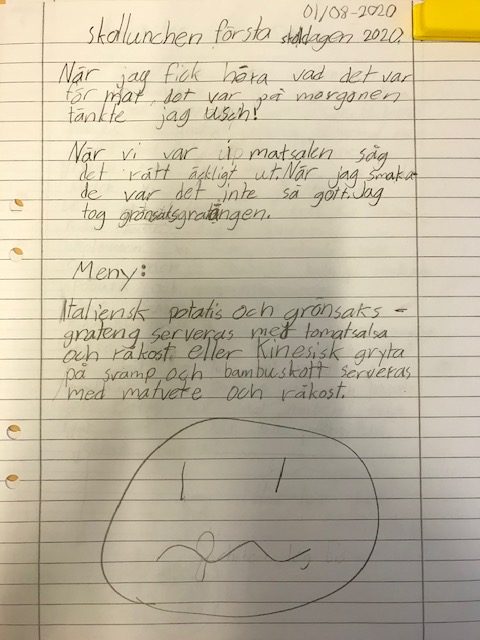 01/08-2020
skollunchen första skoldagen 2020.
När jag fick höra vad det var
för mat, det var på morgonen
tänkte jag usch!
När vi var i matsalen såg
det rätt äckligt ut. När jag smaka-
de var det inte så gott. Jag
tog grönsaksgratängen.
Meny:
Italiensk potatis och grönsaks-
grateng serveras med tomatsalsa
och råkost eller Kinesisk gryta
på svamp och bambuskott serveras
med matvete och råkost.